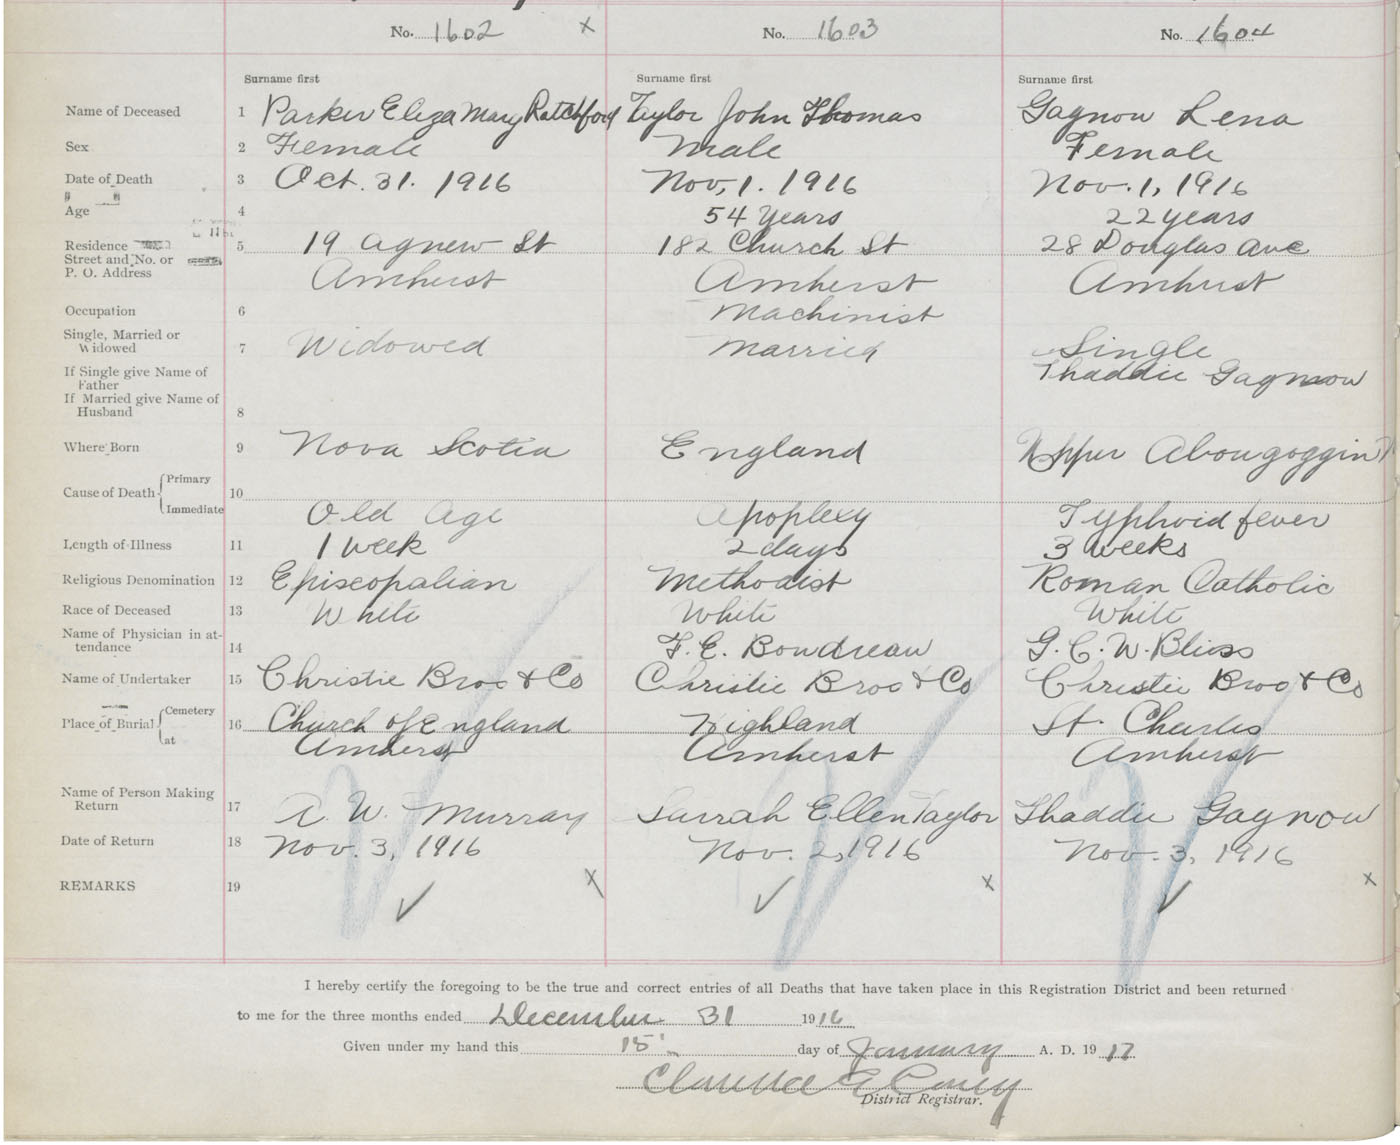 No. 1602 x No. 1603 No. 1604
Surname first Surname first Surname first
Name of Deceased 1 Parker Eliza Mary Ratchford Taylor John Thomas Gagnow Lena
Sex 2 Female Male Female
Date of Death 3 Oct. 31. 1916 Nov, 1. 1916 Nov. 1, 1916
Age 4 54 Years 22 years
Residence 5 19 Agnew St 182 Church St 28 Douglas Ave
Street and No. or
P. O. Address Amherst Amherst Amhurst
Occupation 6 Machinist
Single, Married or
Widowed 7 Widowed Married Single
If Single give Name of
Father Thaddie Gagnow
If Married give Name of
Husband 8
Where Born 9 Nova Scotia England Upper Abougoggin
Cause of Death Primary
10
Immediate Old Age Apoplexy Typhoid fever
Length of Illness 11 1 week 2 days 3 weeks
Religious Denomination 12 Episcopalian Methodist Roman Catholic
Race of Deceased 13 White White White
Name of Physician in at-
tendance 14 F. E. Boudreau G. C. W. Bliss
Name of Undertaker 15 Christie Bros & Co Christie Bros & Co Christie Bros & Co
Place of Burial Cemetery 16 Church of England Highland St. Charles
at Amherst Amherst Amherst
Name of Person Making
Return 17 A. W. Murray Sarrah Ellen Taylor Thaddie Gagnow
Date of Return 18 Nov. 3, 1916 Nov. 2, 1916 Nov. 3, 1916
REMARKS 19 x x x
I hereby certify the foregoing to be the true and correct entries of all Deaths that have taken place in this Registration District and been returned
to me for the three months ended December 31 1916
Given under my hand this 15 day of January A. D. 1917
Clarence E
District Registrar.